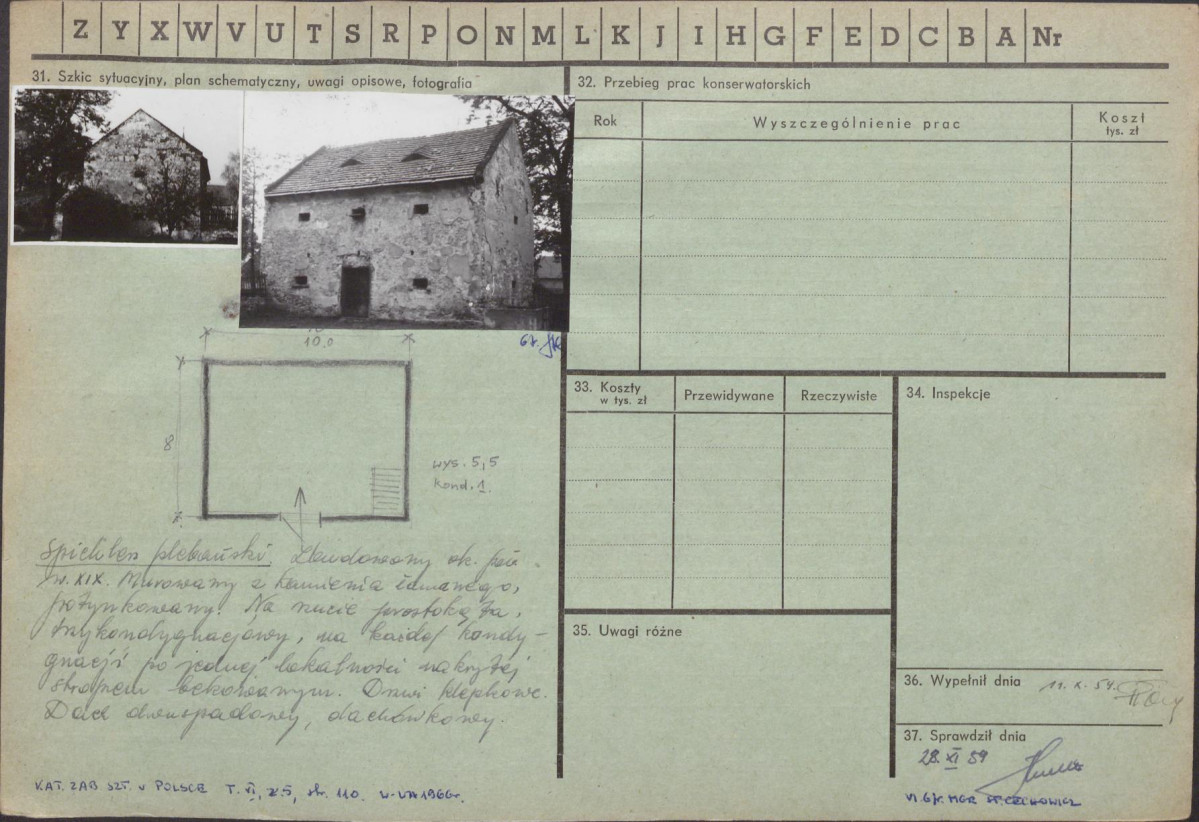 Z Y X W V U T S R P O N M L K J I H G F E D C B A Nr
31. Szkic sytuacyjny, plan schematyczny, uwagi opisowe, fotografia
10.0
8
wys. 5,5
kond. 1.
Spichlerz plebański. Zbudowany ok. poł.
w. XIX. Murowany z kamienia łamanego,
potynkowany. Na rzucie prostokąta,
trzykondygnacjowy, na każdej kondy-
gnacji po jednej lokalności nakrytej
stropem belkowanym. Drzwi klepkowe.
Dach dwuspadowy, dachówkowy.
KAT. ZAB SZT. W POLSCE T. VI, z 5, str. 110. W-WA 1966r.
32. Przebieg prac konserwatorskich
Rok
Wyszczególnienie prac
Koszt
tys. zł
33. Koszty
w tys. zł
Przewidywane
Rzeczywiste
34. Inspekcje
35. Uwagi różne
36. Wypełnił dnia
11. X. 59.
37. Sprawdził dnia
28 XI 59
MGR ST. CECHOWICZ